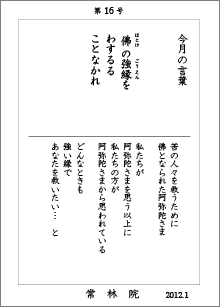 第16号
今月の言葉
佛の強縁を
ほとけ ごうえん
わするる
ことなかれ
苦の人々を救うために
佛となられた阿弥陀さま
私たちが
阿弥陀さまを思う以上に
私たちの方が
阿弥陀さまから思われている
どんなときも
強い縁で
あなたを救いたい… と
常林院 2012.1